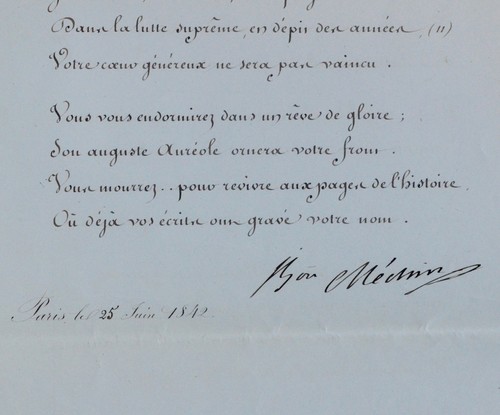 Dans la lutte suprême, en dépit des années, (11)
Votre cœur généreux ne sera pas vaincu.
Vous vous endormirez dans un rêve de gloire;
Son auguste Auréole ornera votre front.
Vous mourrez.. pour revivre aux pages de l'histoire,
Où déjà vos écrits ont gravé votre nom.
Bon Méchin
Paris le 25 Juin 1842